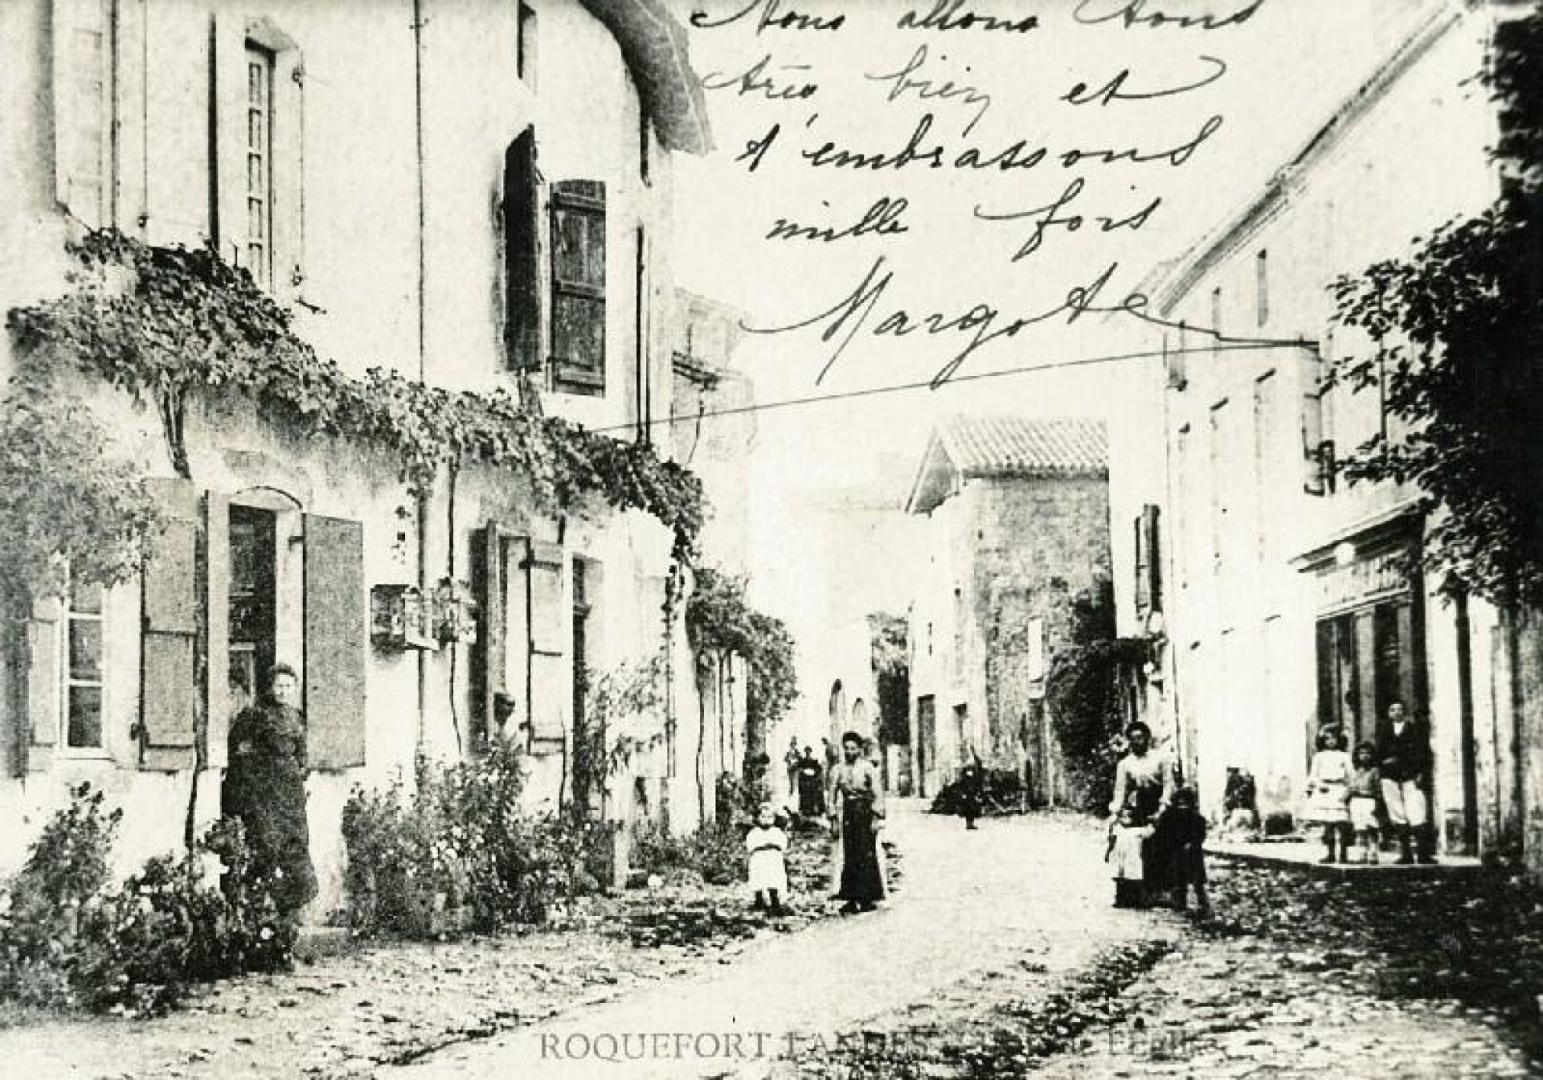 Nous allons tous
très bien et
t'embrassons
mille fois
Margote
ROQUEFORT LANDES